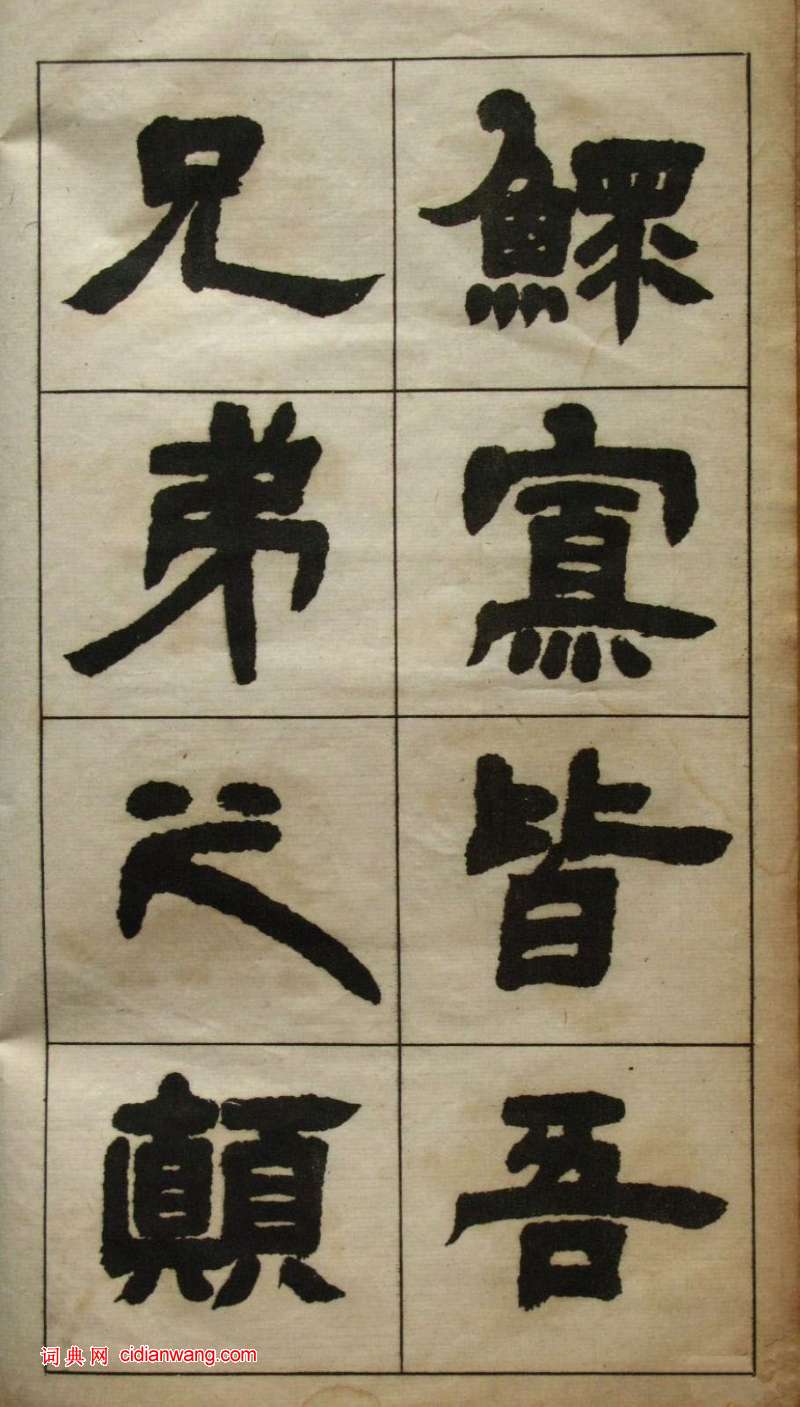 鰥寡皆吾
兄弟之顛
词典网 cidianwang.com